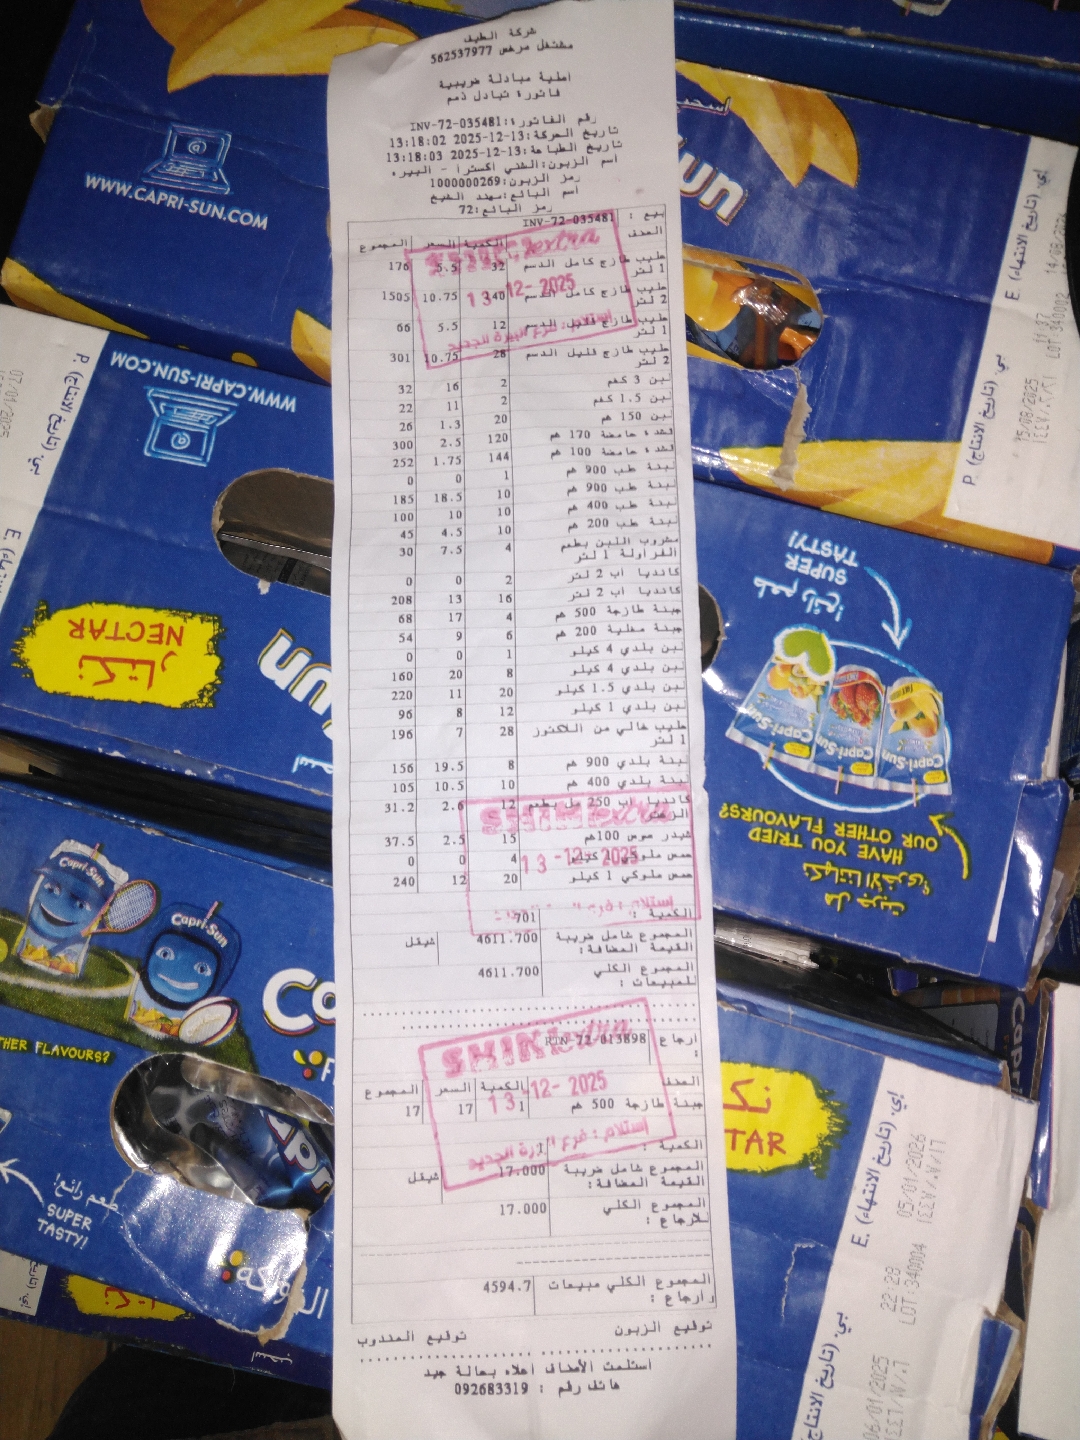 شركة الطيف
مشتغل مرخص 562537977
أصلية مبادلة ضريبية
فاتورة تبادل ذمم
رقم الفاتورة:INV-72-035481
تاريخ الحركة:13-12-2025 13:18:02
تاريخ الطباعة:13-12-2025 13:18:03
اسم الزبون:الشني اكسترا - البيره
رمز الزبون:1000000269
اسم البائع:مهند الشيخ
رمز البائع:72
بيع : INV-72-035481
الصنف الكمية السعر المجموع
حليب طازج كامل الدسم 1 لتر 32 5.5 176
حليب طازج كامل الدسم 2 لتر 140 10.75 1505
حليب طازج قليل الدسم 1 لتر 12 5.5 66
حليب طازج قليل الدسم 2 لتر 28 10.75 301
لبن 3 كغم 2 16 32
لبن 1.5 كغم 2 11 22
لبن 150 غم 20 1.3 26
قشدة حامضة 170 غم 120 2.5 300
قشدة حامضة 100 غم 144 1.75 252
لبنة علب 900 غم 1 0 0
لبنة علب 900 غم 10 18.5 185
لبنة علب 400 غم 10 10 100
لبنة علب 200 غم 10 4.5 45
مشروب اللبن بطعم الفراولة 1 لتر 4 7.5 30
كانديا اب 2 لتر 2 0 0
كانديا اب 2 لتر 16 13 208
جبنة طازجة 500 غم 4 17 68
جبنة مغلية 200 غم 6 9 54
لبن بلدي 4 كيلو 1 0 0
لبن بلدي 4 كيلو 8 20 160
لبن بلدي 1.5 كيلو 20 11 220
لبن بلدي 1 كيلو 12 8 96
حليب خالي من اللاكتوز 1 لتر 28 7 196
لبنة بلدي 900 غم 8 19.5 156
لبنة بلدي 400 غم 10 10.5 105
كانديا اب 250 مل بطعم 12 2.6 31.2
شيدر صوص 100غم 15 2.5 37.5
حمص ملوكي 1 كيلو 4 0 0
حمص ملوكي 1 كيلو 20 12 240
الكمية : 701
المجموع شامل ضريبة القيمة المضافة: 4611.700 شيقل
المجموع الكلي للمبيعات : 4611.700
ارجاع : RIN-72-013898
الصنف الكمية السعر المجموع
جبنة طازجة 500 غم 1 17 17
الكمية : 1
المجموع شامل ضريبة القيمة المضافة: 17.000 شيقل
المجموع الكلي للارجاع : 17.000
المجموع الكلي مبيعات وارجاع : 4594.7
توقيع الزبون توقيع المندوب
استلمت الأصناف أعلاه بحالة جيد
هاتف رقم : 092683319
SHINI extra
13-12-2025
استلام : فرع البيرة الجديد
SHINI extra
13-12-2025
SHINI extra
13-12-2025
استلام : فرع البيرة الجديد
WWW.CAPRI-SUN.COM
WWW.CAPRI-SUN.COM
نكتار
NECTAR
Capri-Sun
Capri-Sun
HER FLAVOURS?
طعم رائع!
SUPER
TASTY!
un
E. (تاريخ الانتهاء) إي.
P. (تاريخ الانتاج) بي.
15/08/2025
LOT 340002
طعم رائع!
SUPER
TASTY!
Capri-Sun
Capri-Sun
Capri-Sun
هل جربت
نكهاتنا الأخرى؟
HAVE YOU TRIED
OUR OTHER FLAVOURS?
TAR
E. (تاريخ الانتهاء) إي.
05/01/2026
22:28
LOT:340004
06/01/2025